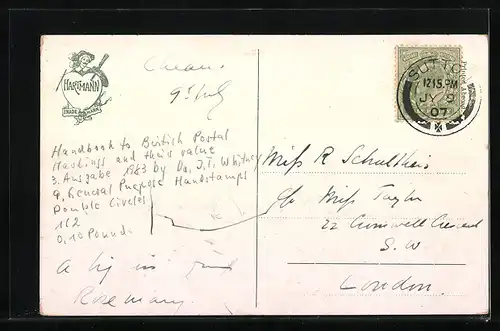 HARTMANN
TRADE MARK
SUTTON
12.15.PM
JY 9
07
Printed Abroad
Cheam
9th July
Handbook to British Postal
Markings and their value
3. Ausgabe 1983 by Dr. J.T. Whitney
9. General Purpose Handstamps
Double Circles
162
0,10 Pound.
A big
Rosemary.
Miss R Schultheis
c/o Miss Taylor
22 Cromwell Crescent
S.W
London.